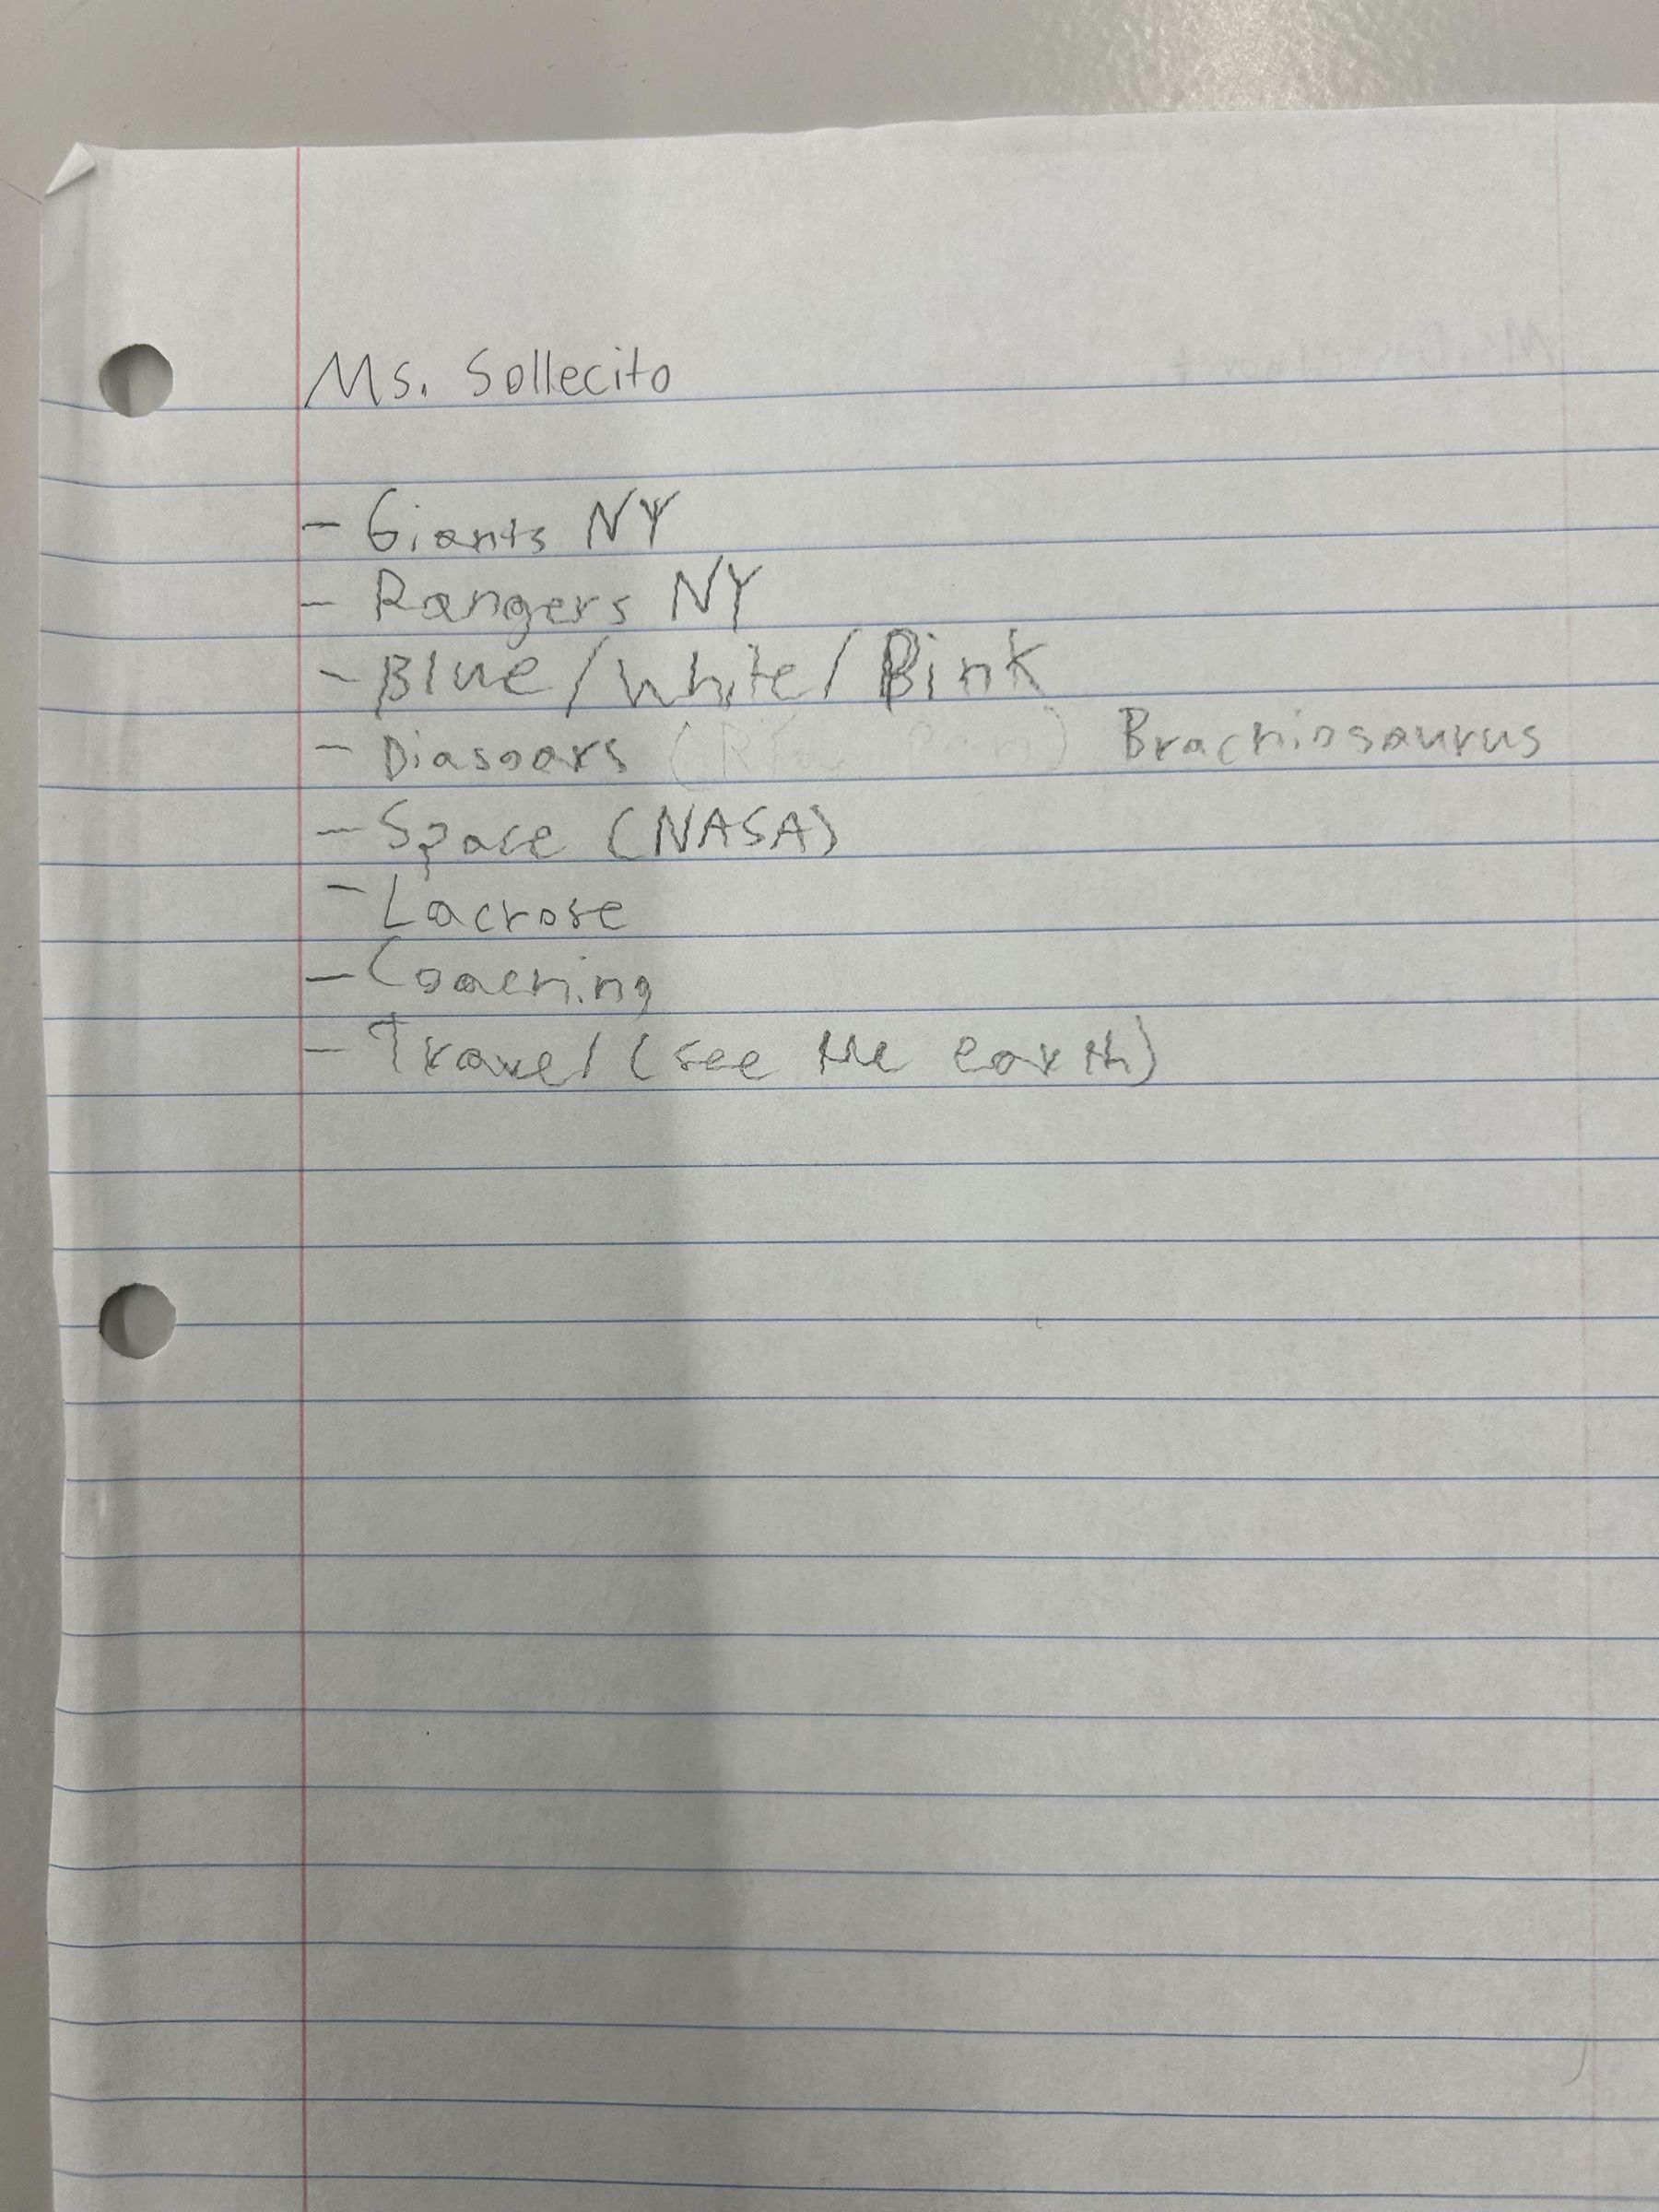 Ms. Sollecito
- Giants NY
- Rangers NY
- Blue/White/Pink
- Diasoars Brachiosaurus
- Space (NASA)
- Lacrose
- Coaching
- Travel (see the earth)